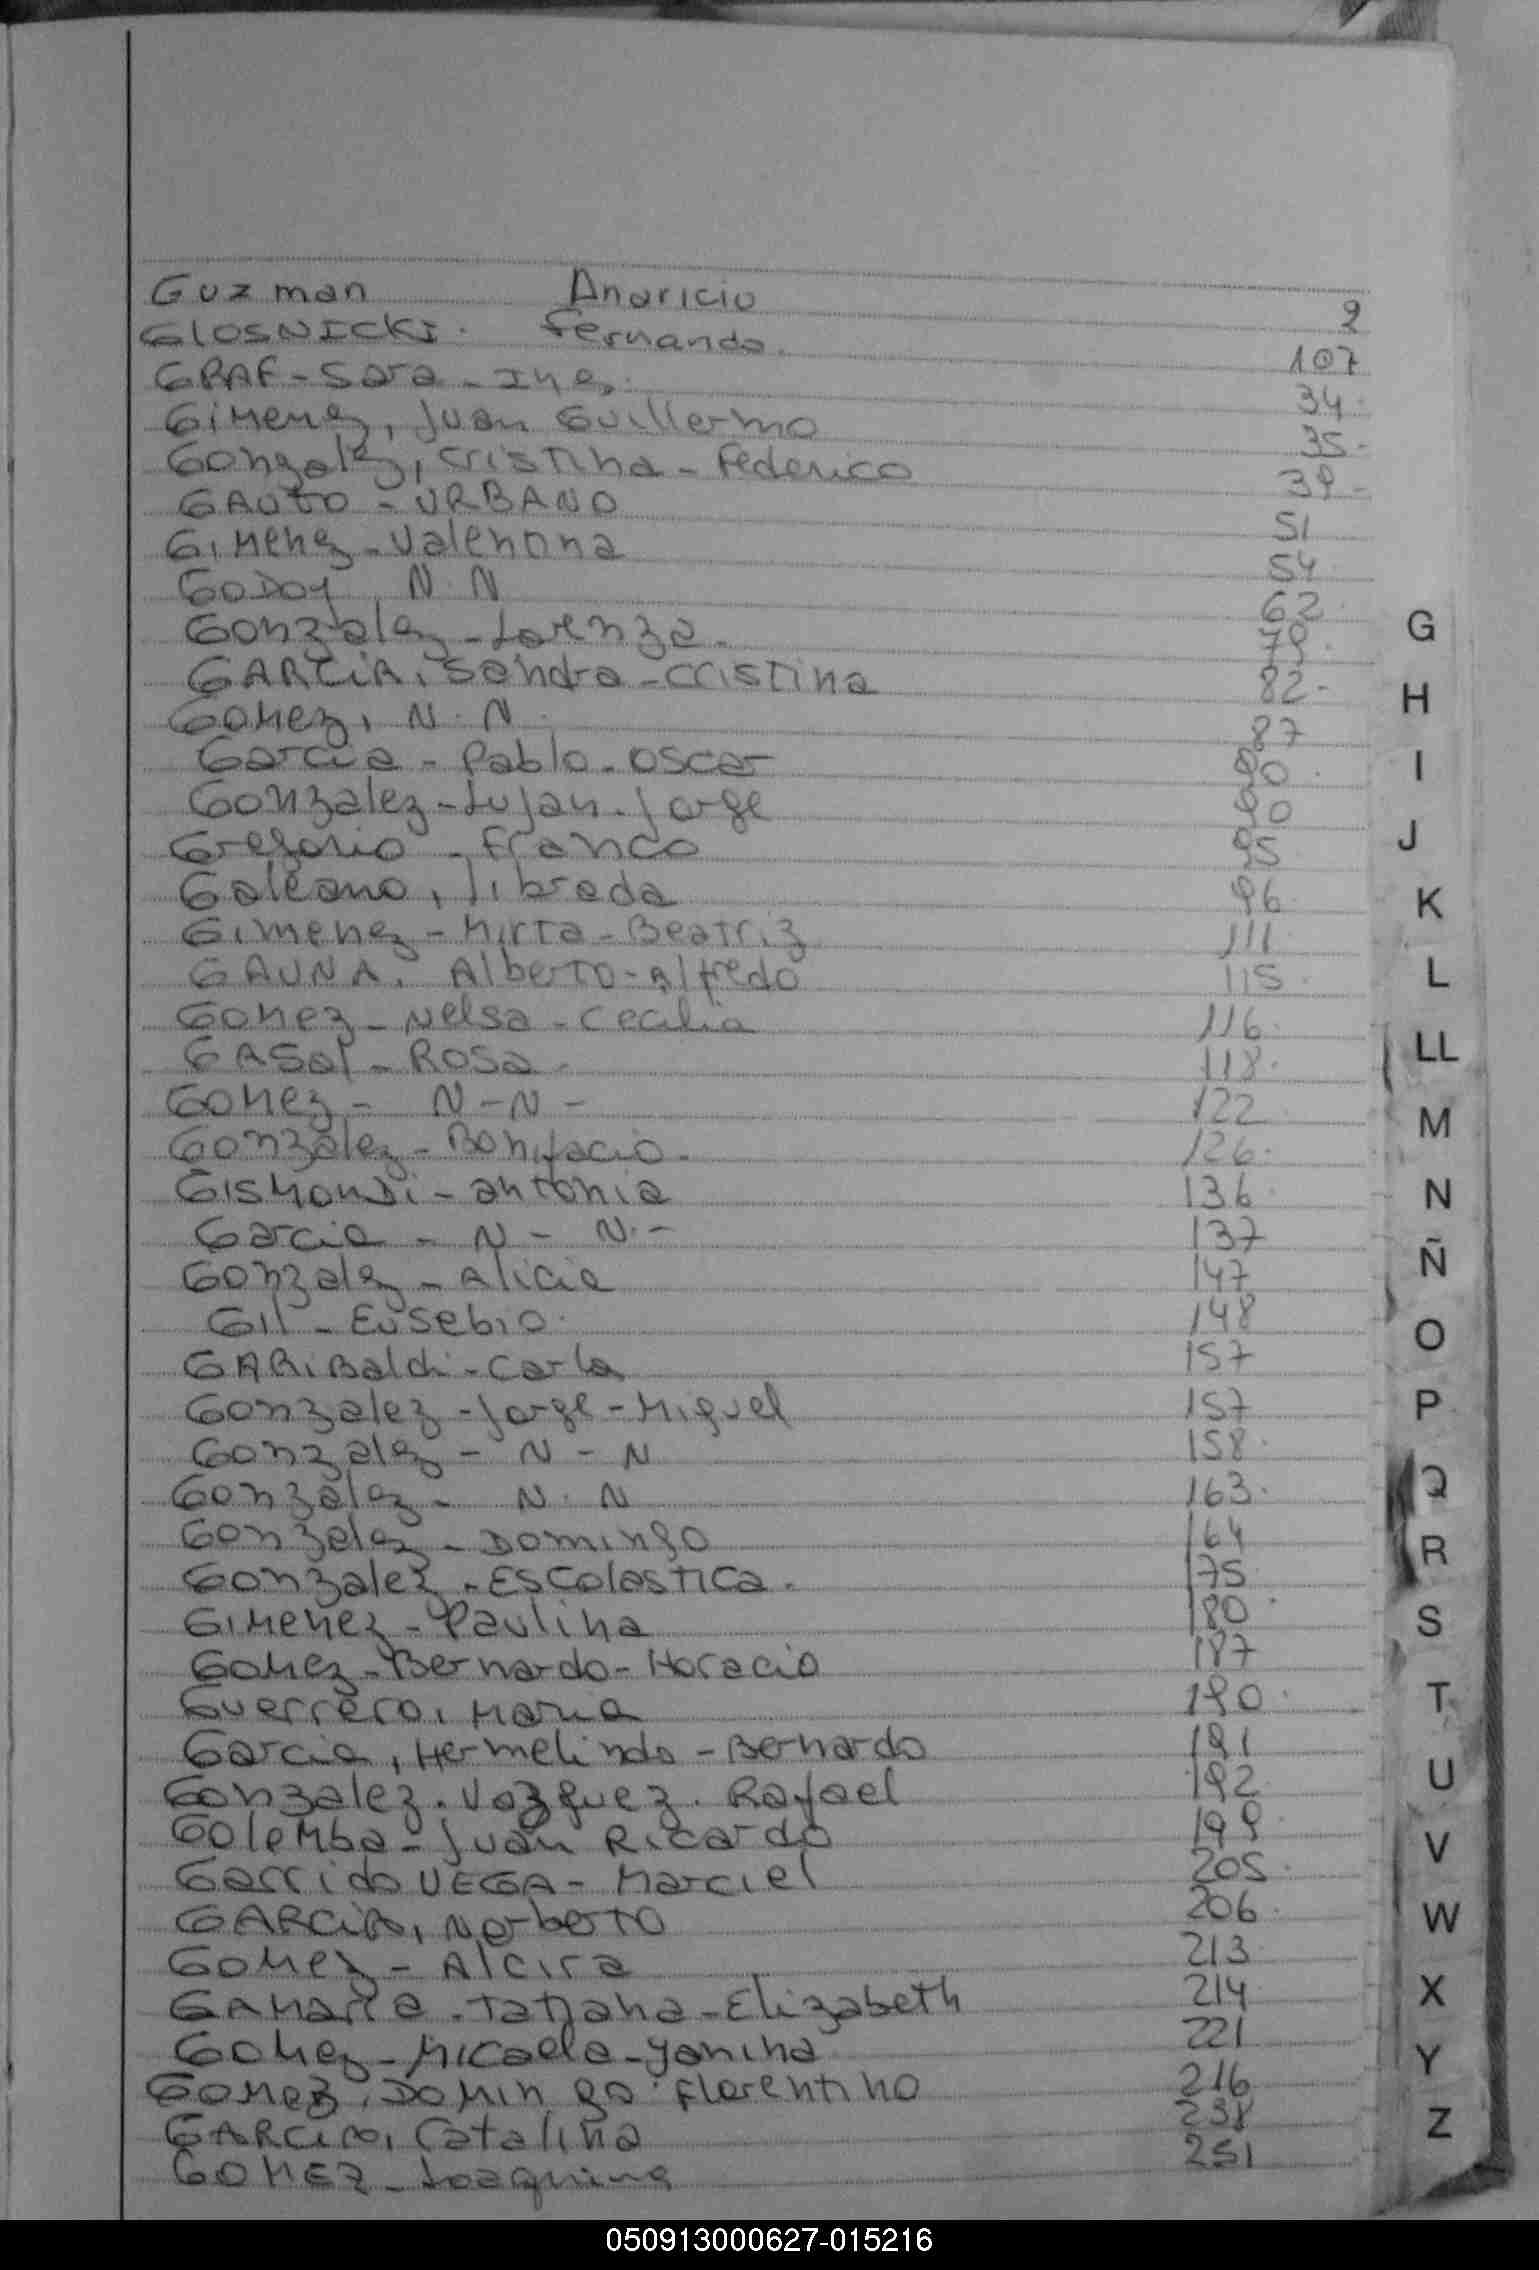 Guzman Anaricio 9
GLOSNICKI. Fernando. 107
GRAF - Sara - Ine. 34.
Gimenez, Juan Guillermo 35-
Gonzalez, Cristina - Federico 39-
GAUTO - URBANO 51
Gimenez - Valentina 54
GODOY N. N 62
Gonzalez - Lorenza. 79.
GARCIA, Sandra - Cristina 82-
Gomez, N. N. 87
Garcia - Pablo - Oscar 90.
Gonzalez - Lujan. Jorge 90
Gregorio - Franco 95
Galeano, Librada 96
Gimenez - Mirta - Beatriz 111
GAUNA. Alberto - Alfredo 115.
Gomez - Nelsa - Cecilia 116.
GASOL - ROSA - 118.
Gomez - N - N - 122
Gonzalez - Bonifacio. 126.
GISMONDI - antonia 136
Garcia - N - N. - 137
Gonzalez - Alicia 147
Gil - Eusebio. 148
GARIBaldi - Carla 157
Gonzalez - Jorge - Miguel 157
Gonzalez - N - N 158.
Gonzalez - N. N 163.
Gonzalez - Domingo 164
Gonzalez - Escolastica. 175
Gimenez - Paulina 180.
Gomez - Bernardo - Horacio 187
Guerrero, Maria 190.
Garcia, Hermelindo - Bernardo 191
Gonzalez. Vazquez. Rafael 192
Golemba - Juan Ricardo 199
Garrido VEGA - Marciel 205.
GARCIA, Norberto 206.
Gomez - Alcira 213
GAMARRA - Tatjana - Elizabeth 214
Gomez - Micaela - Yanina 221
Gomez, Domingo Florentino 216
GARCIA, Catalina 238
GOMEZ - Joaquina 251
G
H
I
J
K
L
LL
M
N
Ñ
O
P
Q
R
S
T
U
V
W
X
Y
Z
050913000627-015216